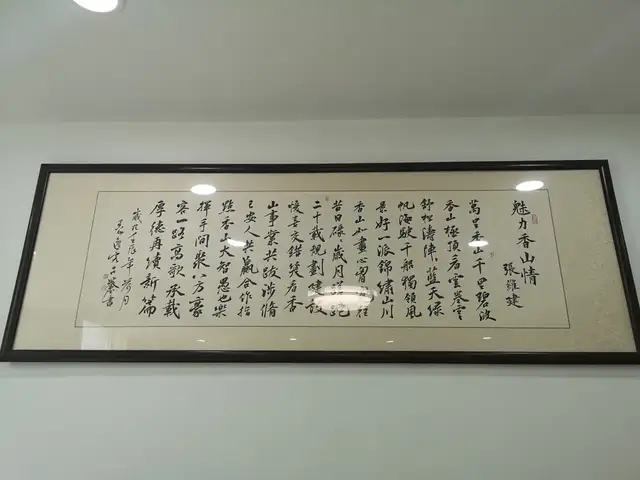 魅力香山情
張維建
萬里香山千里碧波
香山極頂看雲卷雲
舒松濤陣陣藍天緑
帆海駛千船獨領風
景好一派錦繡山川
香山如畫心
昔日碌碌歲月蹉跎
二十載規劃建設
喜交錯筑名香
山事業共跋涉脩
己安人共贏合作指
點香山大智愚也樂
揮手間聚八方豪
客一路高歌承載
厚德再續新篇
年荷月
書